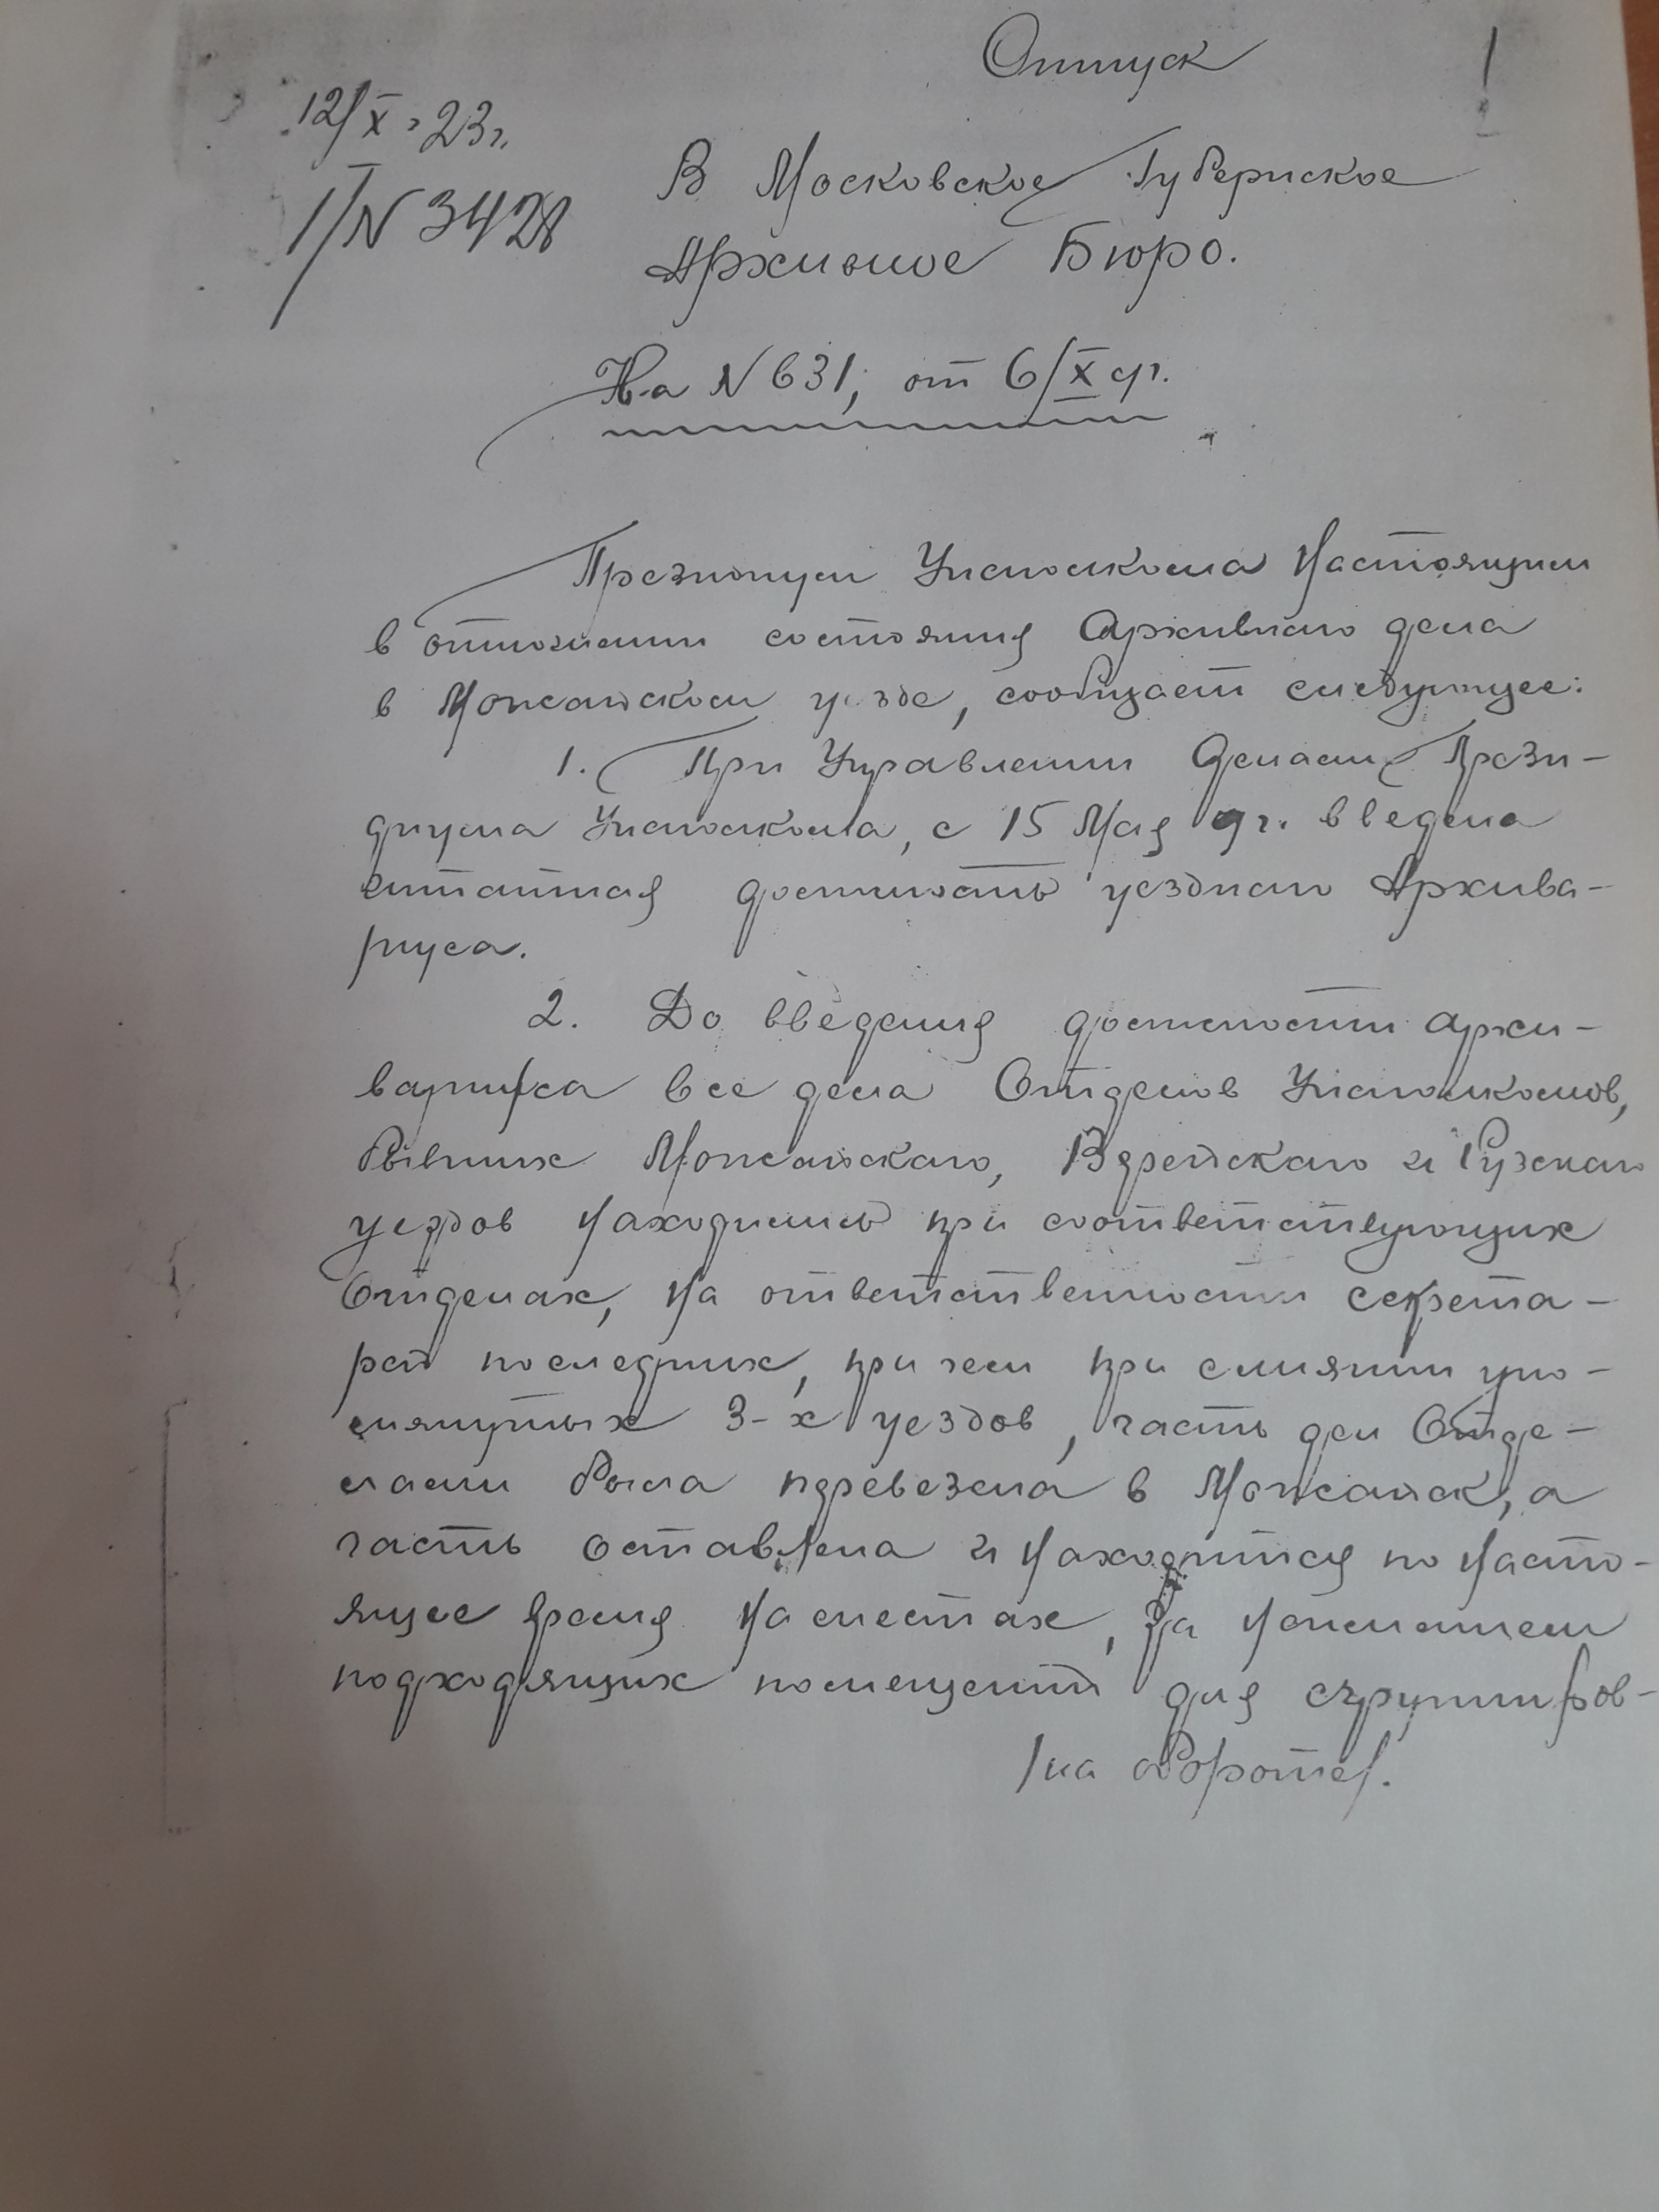 Отпуск
12/X-23г.
1/N 3428
В Московское Губернское
Архивное Бюро.
На N 631, от 6/X с/г.
Президиум Уисполкома настоящим
в отношении состояния Архивного дела
в Можайском уезде, сообщает следующее:
1. При Управлении Делами Прези-
диума Уисполкома, с 15 Мая с/г. введена
штатная должность уездного Архива-
риуса.
2. До введения должности архи-
вариуса все дела Отделов Уисполкомов,
бывших Можайского, Верейского и Рузского
уездов находились при соответствующих
Отделах, на ответственности секрета-
рей последних, при чем при слиянии упо-
мянутых 3-х уездов, часть дел Отде-
лами была перевезена в Можайск, а
часть оставлена и находится по насто-
ящее время на местах, за неимением
подходящих помещений для сгруппиров-
/на обороте/.